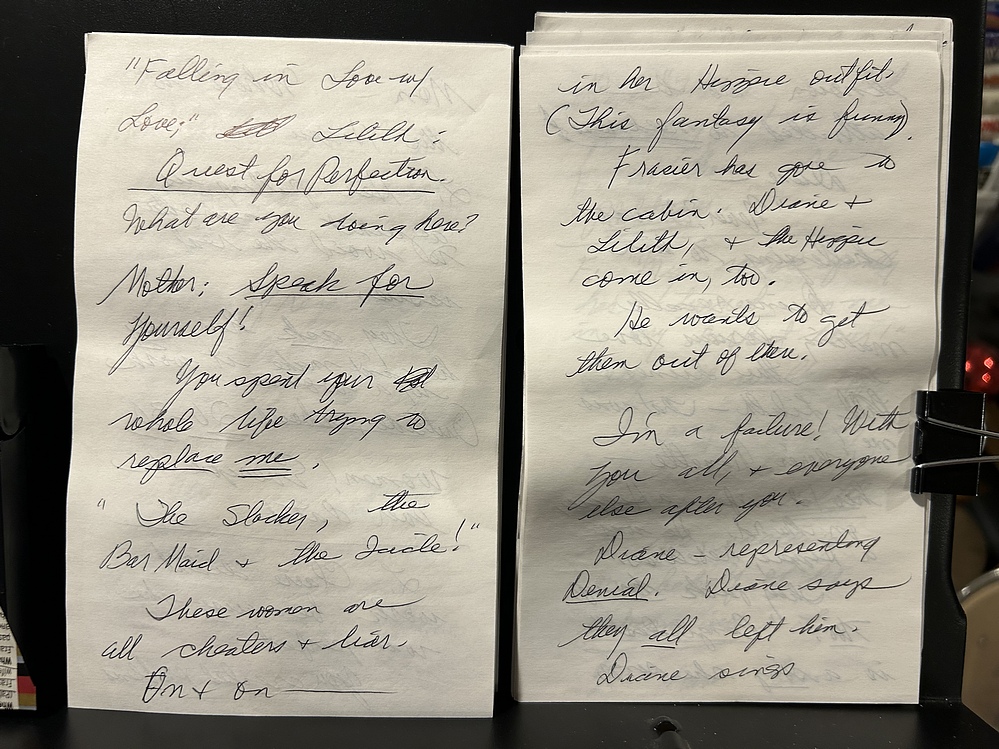 "Falling in Love w/
Love;" Lilith:
Quest for Perfection.
What are you doing here?
Mother: Speak for
Yourself!
You spent your
whole life trying to
replace me.
"The Slacker, the
Bar Maid & the Icicle!"
These women are
all cheaters & liar.
On & on
in her Hippie outfit.
(This fantasy is funny).
Frasier has gone to
the cabin. Diane &
Lilith, & the Hippie
come in, too.
He wants to get
them out of there.
I'm a failure! With
you all, & everyone
else after you.
Diane - representing
Denial. Diane says
they all left him.
Diane sings